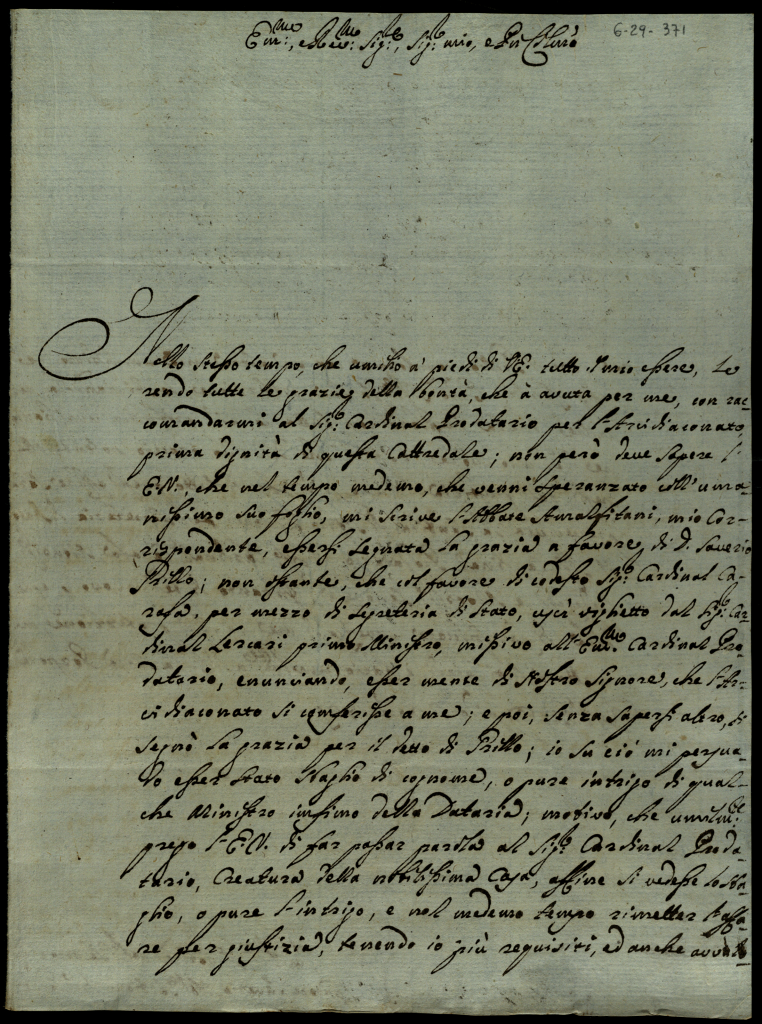 6-29-371
Em:mo, e Rev:mo Sig:e, Sig:e mio, e Pn Colmo
Nello stesso tempo, che umilio a' piedi di VE: tutto l'mio essere, Le
rendo tutte le grazie della bontà, che à avuta per me, con rac-
comandarmi al Sig:r Cardinal Prodatario per l'Arcidiaconato,
prima dignità di questa Cattredale; non però deve sapere l'
E.V., che nel tempo medemo, che venni speranzato coll'uma-
nissimo suo foglio, mi scrive l'Abbate Amalfitani, mio Cor-
rispondente, essersi segnata la grazia a favore di D. Saverio
Prillo; non ostante, che col favore di codesto Sig:r Cardinal Ca-
rafa, per mezzo di Segreteria di Stato, uscì viglietto dal Sig:r Car-
dinal Lercari primo Ministro, missivo all'Em:mo Cardinal Pro-
datario, enunciando, esser mente di Nostro Signore, che l'Ar-
cidiaconato si conferisse a me; e poi, senza sapersi altro, si
segnò la grazia per il detto di Prillo; io su ciò mi persua-
do esser stato sbaglio di cognome, o pure intrigo di qual-
che Ministro infimo della Dataria; motivo, che umilm:te
prego l'E.V. di far passar parola al Sig:r Cardinal Proda-
tario, Creatura della nobilissima Casa, affine si vedesse lo sba-
glio, o pure l'intrigo, e nel medemo tempo rimetter l'affa-
re per giustizia, tenendo io più requisiti, ed anche